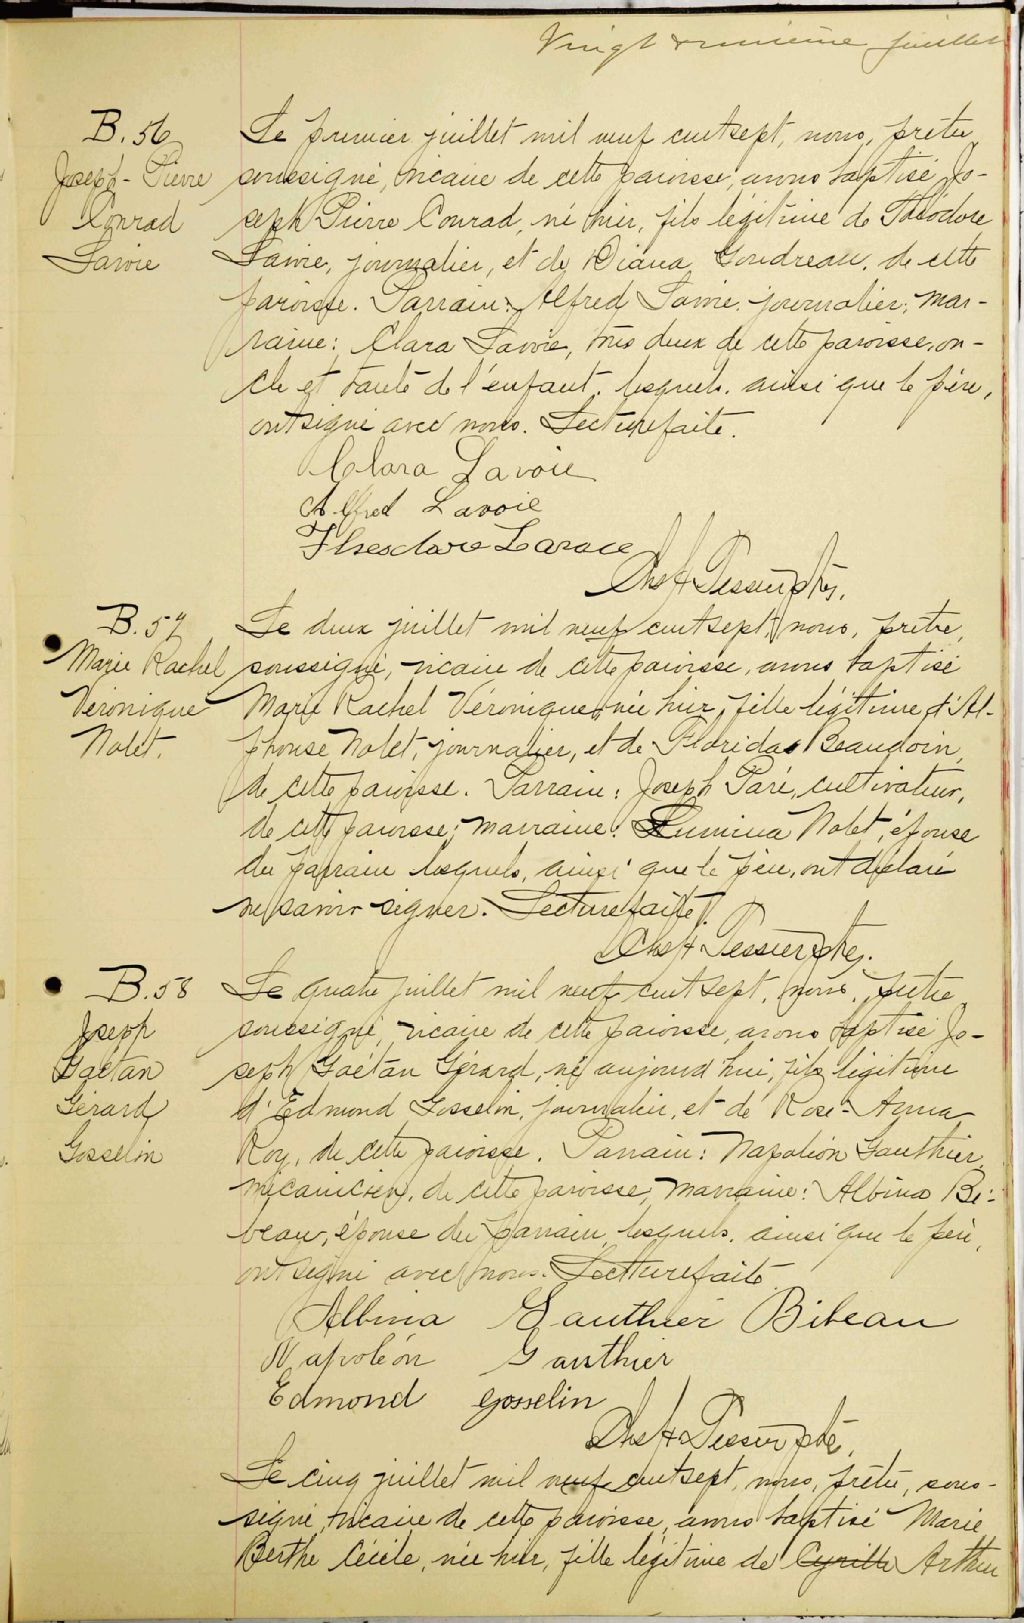 Vingt & unième feuillet
B. 56
Joseph-Pierre
Conrad
Lavoie
Le premier juillet mil neuf cent sept, nous, prêtre
soussigné, vicaire de cette paroisse, avons baptisé Jo-
seph Pierre Conrad, né hier, fils légitime de Théodore
Lavoie, journalier, et de Diana Goudreau, de cette
paroisse. Parrain: Alfred Lavoie, journalier; mar-
raine: Clara Lavoie, tous deux de cette paroisse, on-
cle et tante de l'enfant, lesquels, ainsi que le père,
ont signé avec nous. Lecture faite.
Clara Lavoie
Alfred Lavoie
Theodore Lavoie
Chs H Tessier, ptre.
B. 57
Marie Rachel
Véronique
Nolet.
Le deux juillet mil neuf cent sept, nous, prêtre,
soussigné, vicaire de cette paroisse, avons baptisé
Marie Rachel Véronique, née hier, fille légitime d'Al-
phonse Nolet, journalier, et de Florida Beaudoin,
de cette paroisse. Parrain: Joseph Paré, cultivateur,
de cette paroisse; marraine: Lumina Nolet, épouse
du parrain lesquels, ainsi que le père, ont déclaré
ne savoir signer. Lecture faite.
Chs H Tessier, ptre.
B. 58
Joseph
Gaétan
Gérard
Gosselin
Le quatre juillet mil neuf cent sept, nous, prêtre
soussigné, vicaire de cette paroisse, avons baptisé Jo-
seph Gaétan Gérard, né aujourd'hui, fils légitime
d'Edmond Gosselin, journalier, et de Rose-Anna
Roy, de cette paroisse. Parrain: Napoléon Gauthier,
mécanicien, de cette paroisse; marraine: Albina Bi-
beau, épouse du parrain, lesquels, ainsi que le père,
ont signé avec nous. Lecture faite.
Albina Gauthier Bibeau
Napoléon Gauthier
Edmond Gosselin
Chs H Tessier ptre.
Le cinq juillet mil neuf cent sept, nous, prêtre, sous-
signé, vicaire de cette paroisse, avons baptisé Marie
Berthe Cécile, née hier, fille légitime de Cyrille Arthur